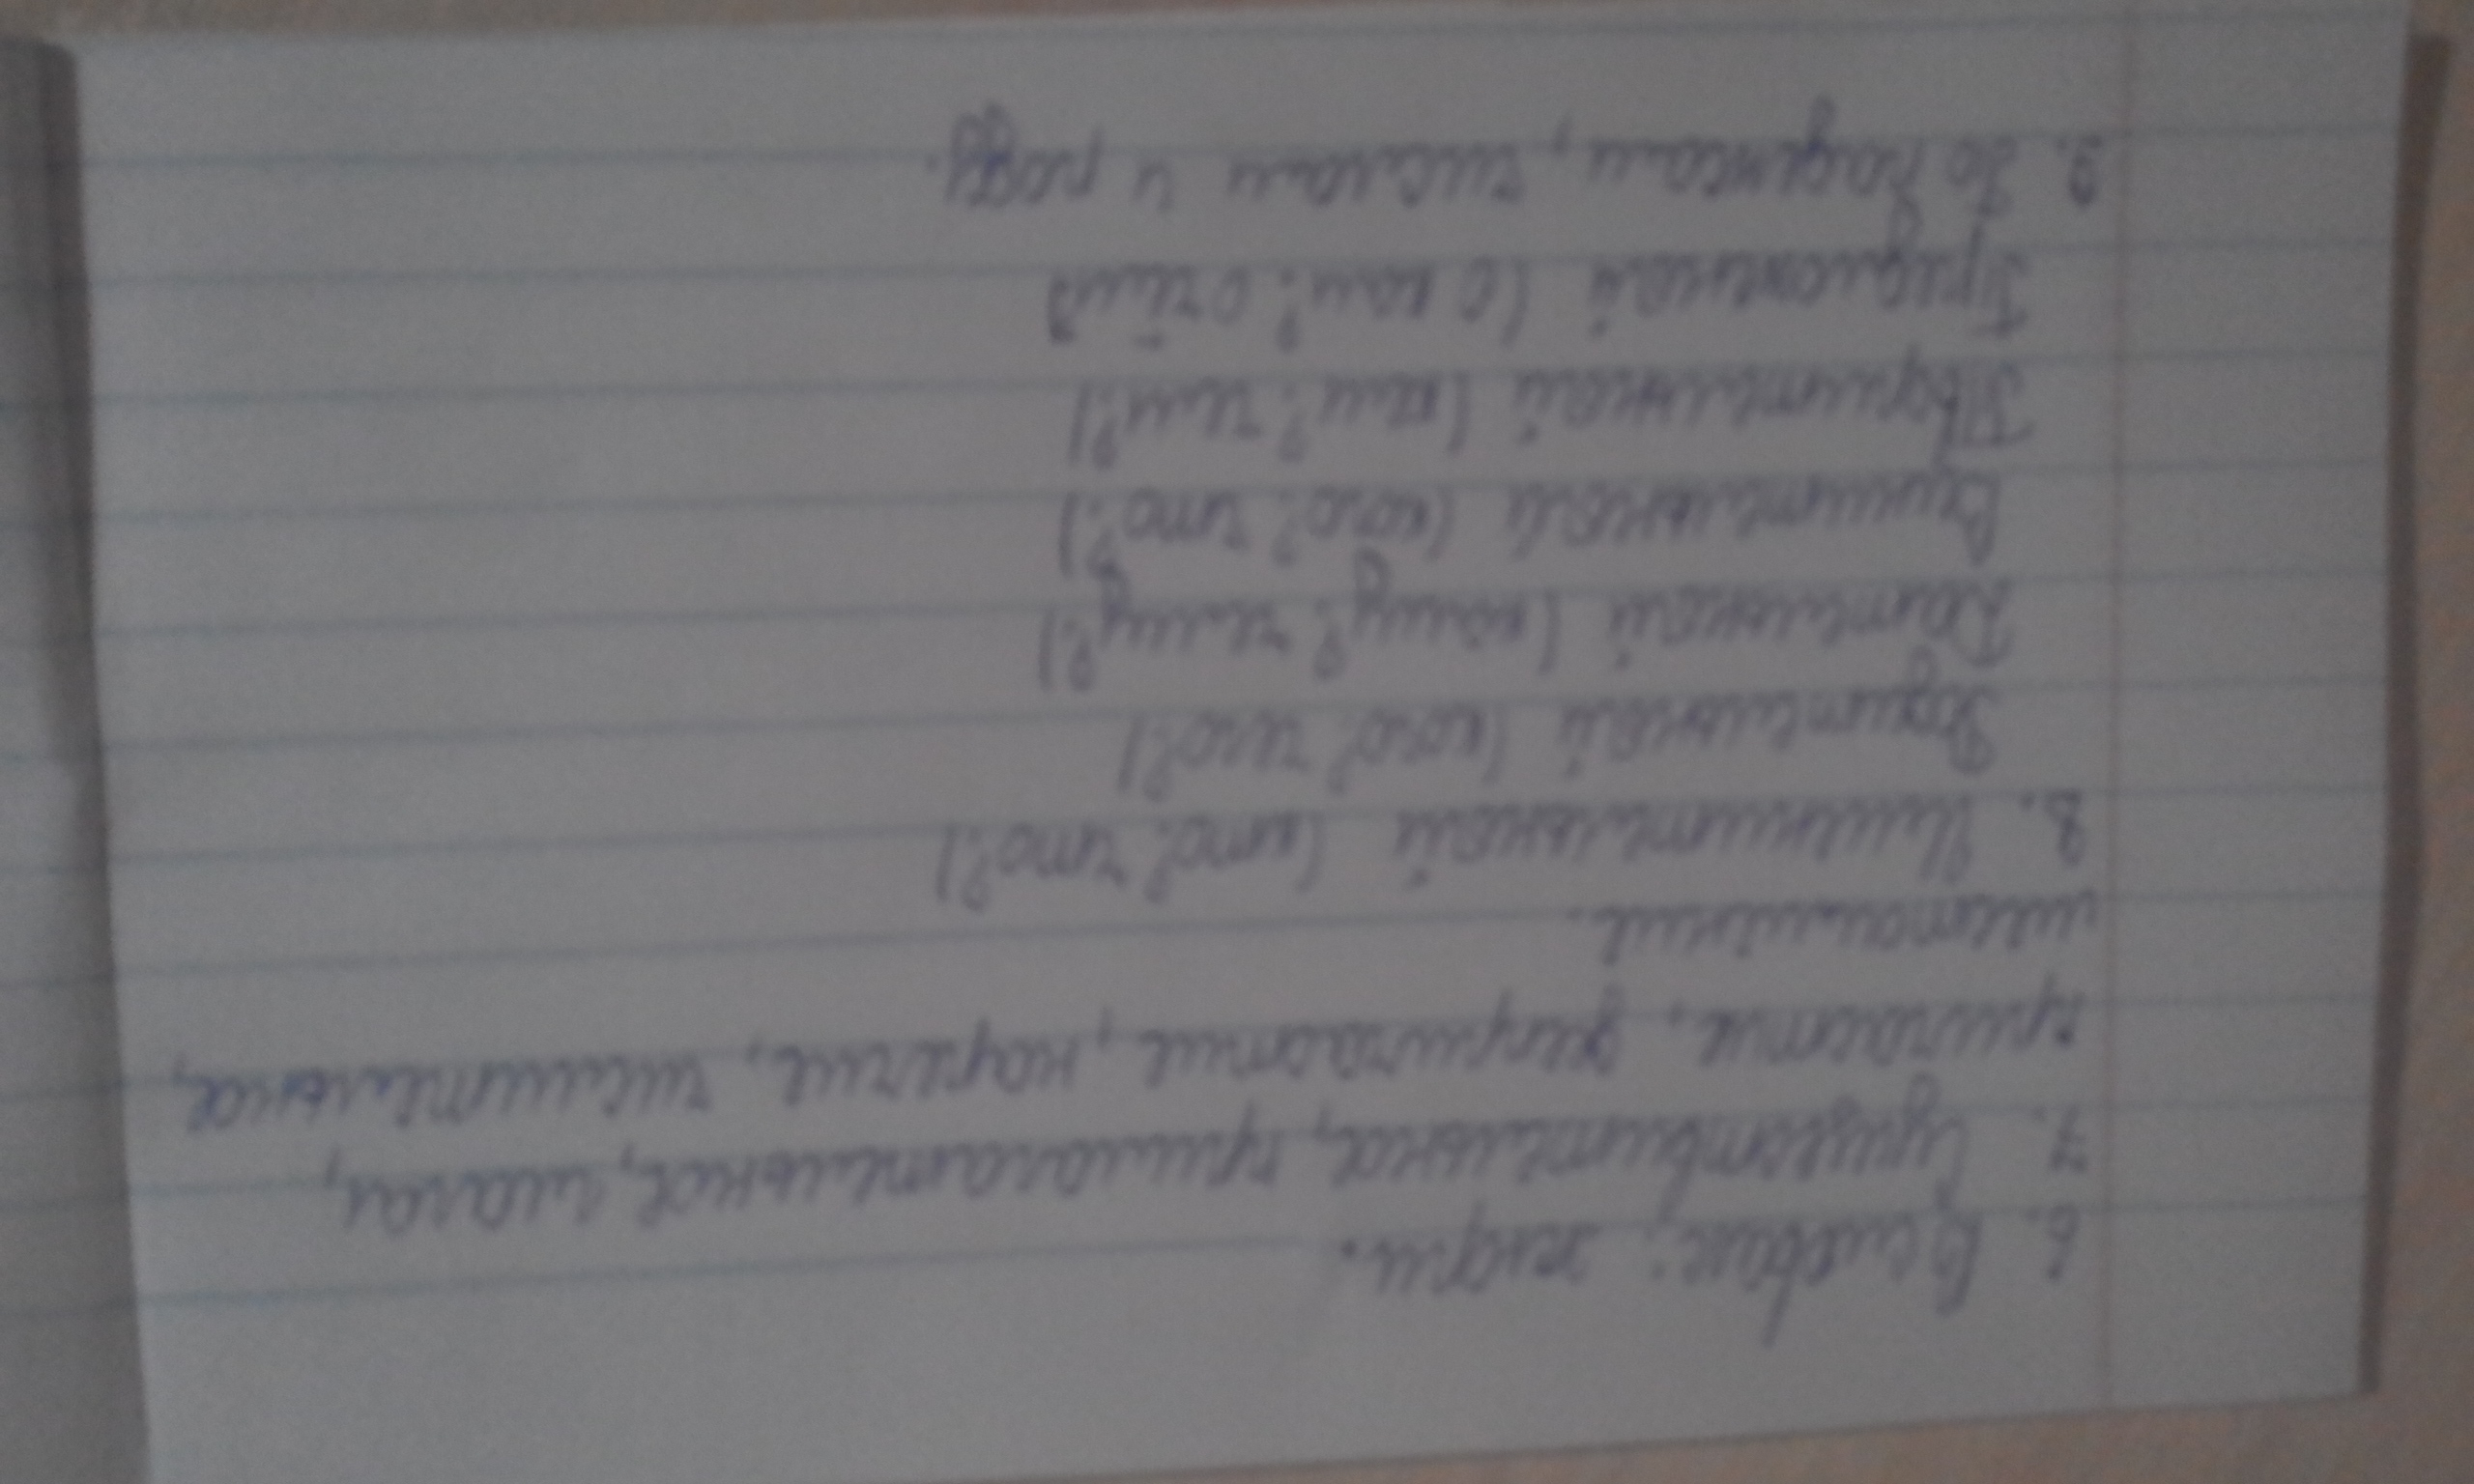 6. В словах: жидкм.
7. Существительное, прилагательное, глагол,
причастие, деепричастие, наречие, числительное,
местоимение.
8. Именительный (кто? что?)
Родительный (кого? чего?)
Дательный (кому? чему?)
Винительный (кого? что?)
Творительный (кем? чем?)
Предложный (о ком? о чём?)
9. По падежам, числам и роду.